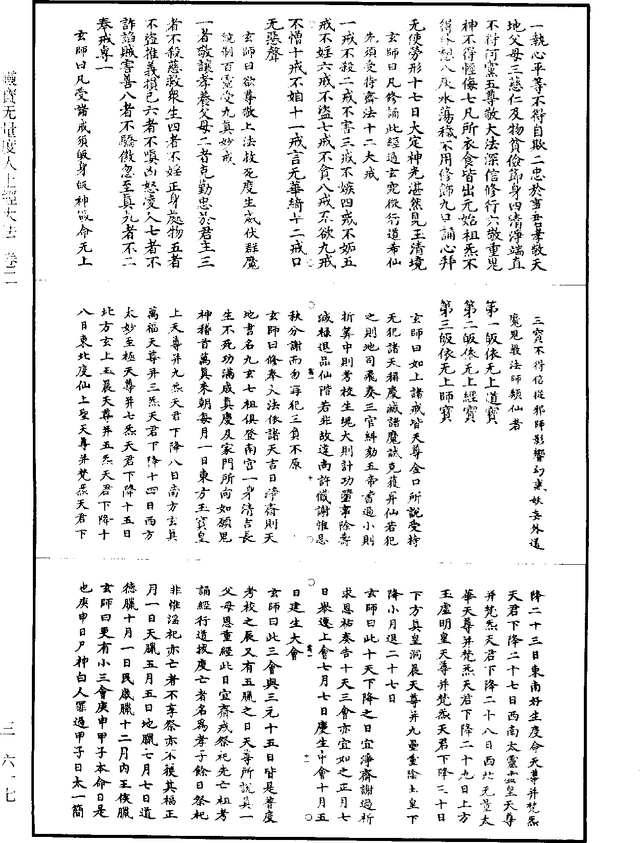 一執心平等不得自欺二忠於
孝敬天
地父母三慈仁及物貧儉節身四清淨端直
不得阿黨五尊敬大法深信修行六敬重鬼
神不得輕侮七凡所衣食皆出元始祖炁不
得
九口誦心拜
無使勞形十七日大定神光湛然見玉清境
玄師曰凡修誦此經過玄究微行道希仙
先須受持齋法十二大戒
一戒不殺二戒不害三戒不嫉四戒不妬五
戒不婬六戒不盜七戒不貪八戒不欲九戒
不憎十戒不姤十一戒言無華綺十二戒口
無惡聲
玄師曰欲尊敬上法拔死度生威伏群魔
統制百靈受九真妙戒
一者敬讓孝養父母二者克勤忠於君王三
者不殺慈救衆生四者不婬正身處物五者
不盜推義損己六者不嗔凶怒凌人七者不
詐諂賊害善八者不驕傲忽至真九者不二
奉戒專一
玄師曰凡受諸戒須皈身皈神皈命無上
三寶不得信從邪師影響幻惑妖妄外道
魔鬼教法師類仙者
第一皈依無上道寶
第二皈依無上經寶
第三皈依無上師寶
玄師曰如上諸戒皆天尊金口所說受持
無犯諸天稱慶威諸魔試克獲昇仙若犯
之則地司飛奏三官糾劾五帝書過小則
折筭中則考校生魂大則計功
除壽
滅祿退品仙階若非故違尚許懺謝惟恩
秋分謝而勿再犯三負不原
玄師曰修奉入法依諸天吉日淨齋則天
地書名九玄七祖俱登南宮一身清吉長
生不死功滿成真慶及家門所向如願鬼
神稽首萬真來朝每月一日東方玉寶皇
上天尊并九炁天君下降八日南方玄真
萬福天尊并三炁天君下降十四日西方
太妙至極天尊并七炁天君下降十五日
北方玄上玉晨天尊并五炁天君下降十
八日東北度仙上聖天尊并梵炁天君下
降二十三日東南好生度命天尊并梵炁
天君下降二十七日西南太靈虛皇天尊
并梵炁天君下降二十八日西北無量太
華天尊并梵炁天君下降二十九日上方
玉虛明皇天尊并梵炁天君下降三十日
下方真皇洞晨天尊并九壘重陰土皇下
降小月退二十七日
玄師曰此十天下降之日宜淨齋謝過祈
求恩祐奏告十天三會亦宜如之正月七
日舉遷上會七月七日慶生中會十月五
日建生大會
玄師曰此三會與三元十五日皆是普度
考校之辰又有五臘之日天尊所說真一
父母恩重經此日宜齋戒祭祀先亡祖考
誦經行道拔度亡者名為孝子餘日祭祀
非惟淫祀亦亡者不享祭亦不獲其福正
月一日天臘五月五日地臘七月七日道
德臘十月一日民歲臘十二月内王侯臘
玄師曰更有小三會庚申甲子本命日是
也庚申日尸神白人罪過甲子日太一簡
靈寶無量度人上經大法 卷二
三 六一七